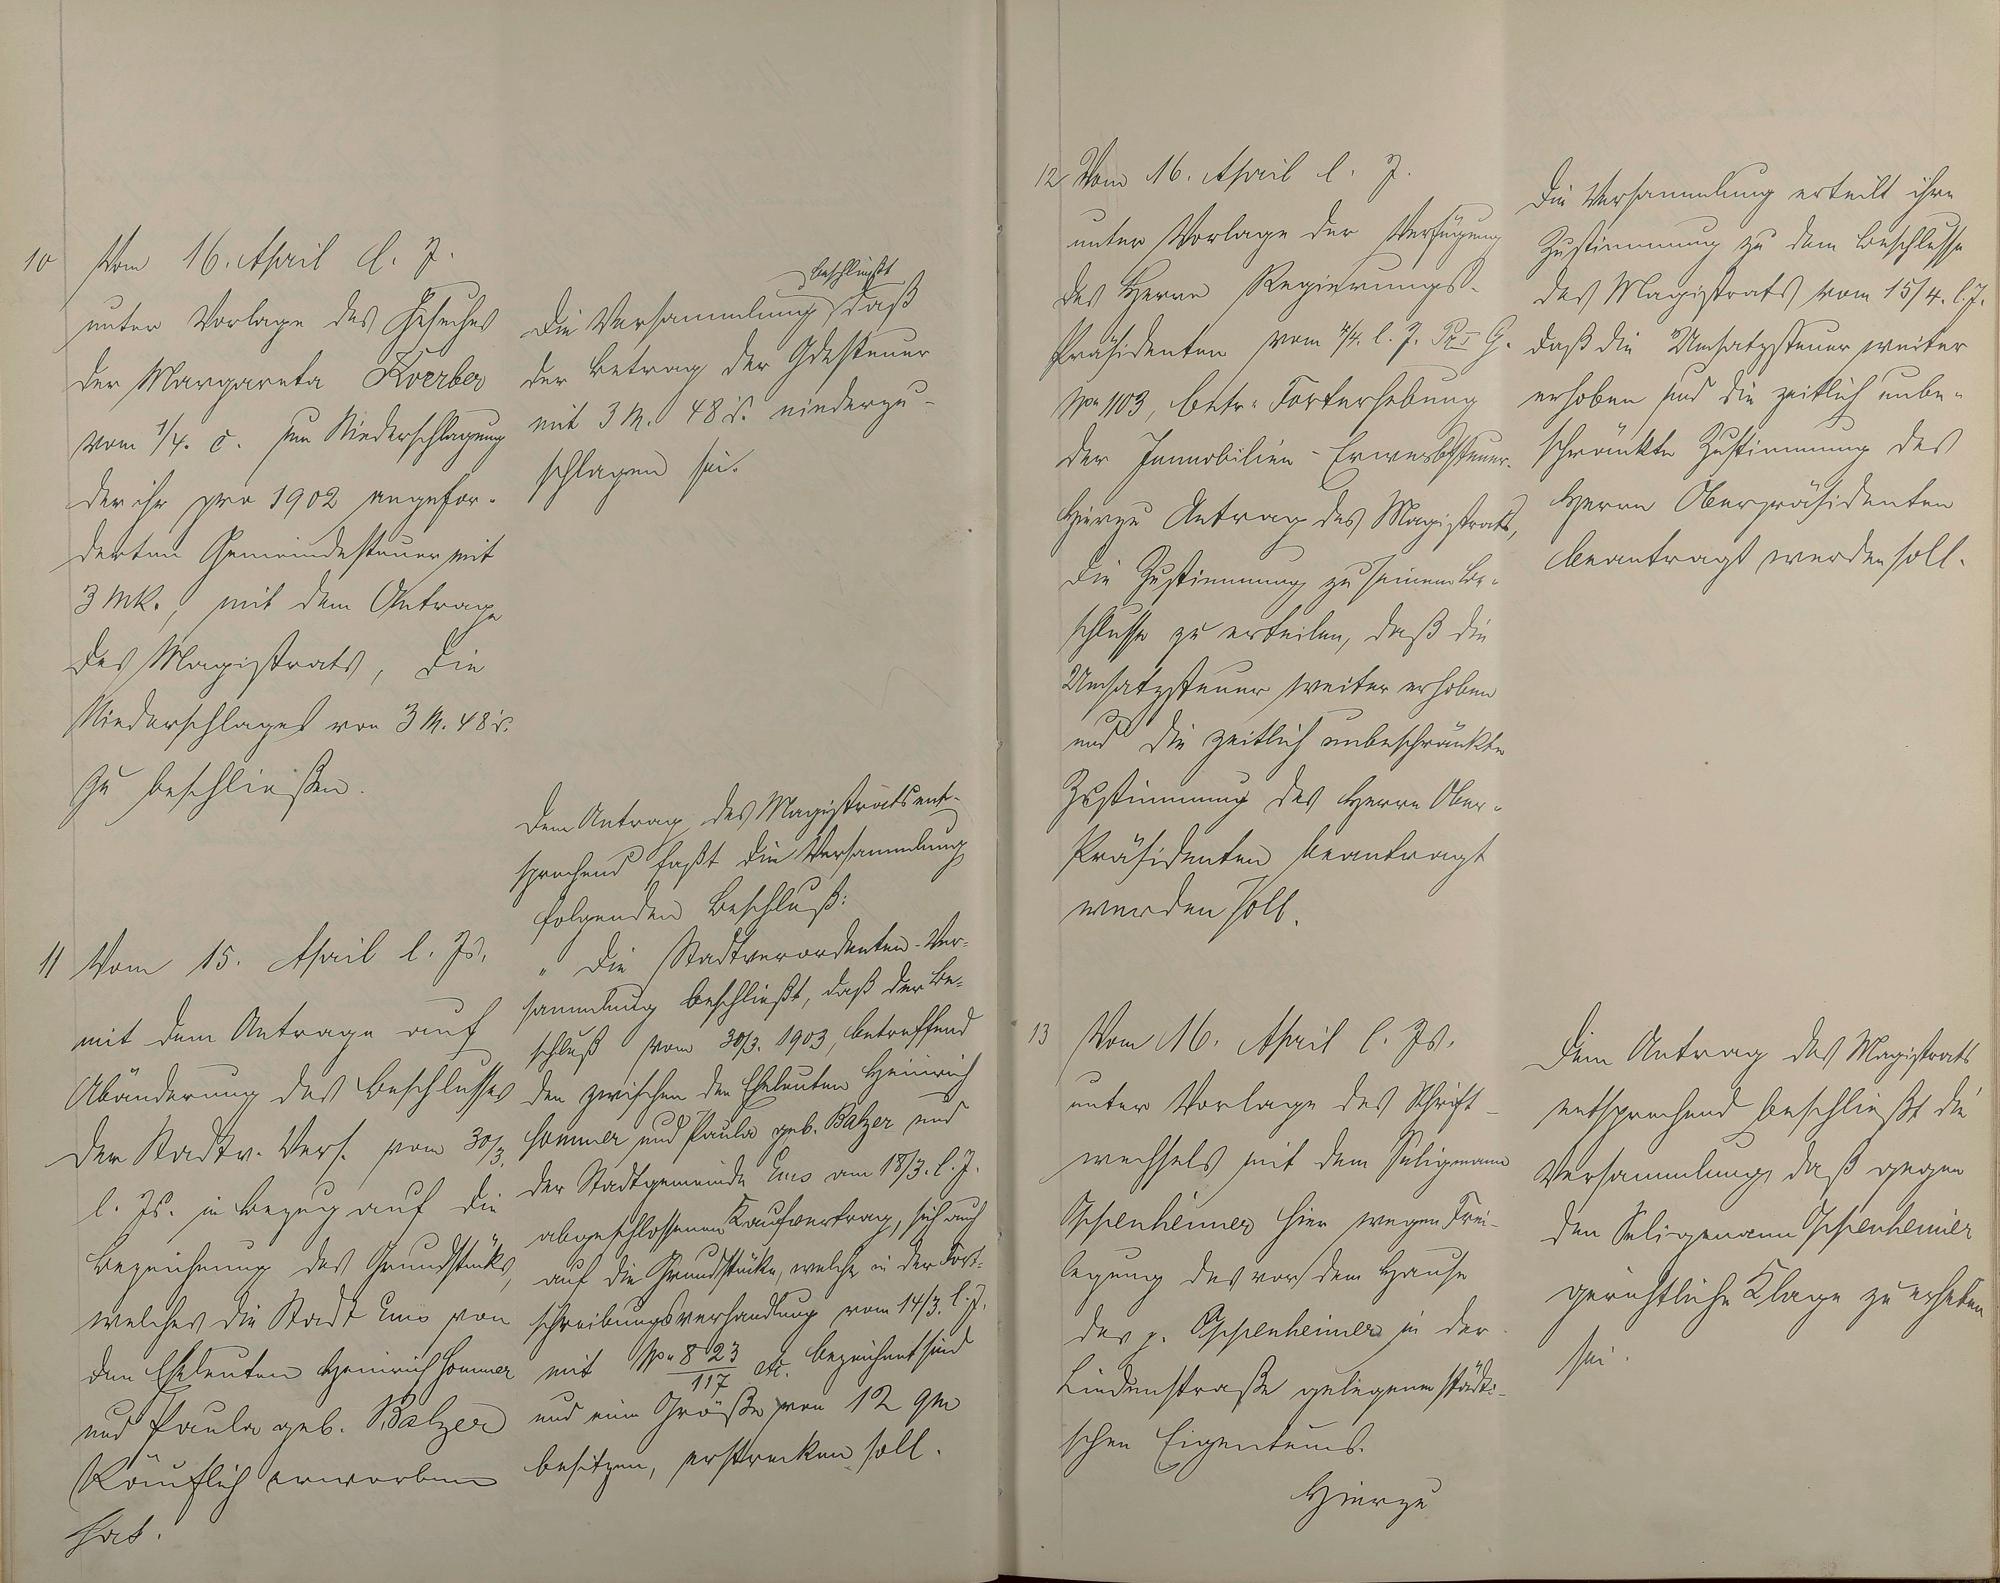 10 Vom 16. April l. J.
unter Vorlage des Gesuches
der Margareta Koerber
vom 1/4. c. um Niederschlagung
der ihr pro 1902 angefor-
derten Gemeindesteuer mit
3 Mk., mit dem Antrage
des Magistrats, die
Niederschlages von 3 M. 48 ₰.
zu beschließen.
beschließt
Die Versammlung daß
der Betrag der Gdesteuer
mit 3 M. 48 ₰. niederzu-
schlagen sei.
11 Vom 15. April l. Js.
mit dem Antrage auf
Abänderung des Beschlusses
der Stadtv. Vers. vom 30/3.
l. Js. in Bezug auf die
Bezeichnung des Grundstücks,
welches die Stadt Ems von
den Eheleuten Heinrich Sommer
und Paula geb. Balzer
käuflich erworben
hat.
Dem Antrag des Magistrats ent-
sprechend faßt die Versammlung
folgenden Beschluß:
" Die Stadtverordneten-Ver-
sammlung beschließt, daß der Be-
schluß vom 30/3. 1903, betreffend
den zwischen den Eheleuten Heinrich
Sommer und Paula geb. Balzer und
der Stadtgemeinde Ems am 18/3. l. J.
abgeschlossenen Kaufvertrag, sich auch
auf die Grundstücke, welche in der Fort-
schreibungsverhandlung vom 14/3. l. J.
mit No 823/117 etc. bezeichnet sind
und eine Größe von 12 qm
besitzen, erstrecken soll.
12 Vom 16. April l. J.
unter Vorlage der Verfügung
des Herrn Regierungs-
Präsidenten vom 4/4. l. J. Pr. I G.
No 1103, betr. Forterhebung
der Immobilien-Erwerbssteuer.
Hierzu Antrag des Magistrats,
die Zustimmung zu seinem Be-
schlusse zu erteilen, daß die
Umsatzsteuer weiter erhoben
und die zeitlich unbeschränkte
Zustimmung des Herrn Ober-
Präsidenten beantragt
werden soll.
Die Versammlung erteilt ihre
Zustimmung zu dem Beschlusse
des Magistrats vom 15/4. l. J.
daß die Umsatzsteuer weiter
erhoben und die zeitlich unbe-
schränkte Zustimmung des
Herrn Oberpräsidenten
beantragt werden soll.
13 Vom 16. April l. Js.
unter Vorlage des Schrift-
wechsels mit dem Seligmann
Oppenheimer hier wegen Frei-
legung des vor dem Hause
des p. Oppenheimer in der
Lindenstraße gelegenen städti-
schen Eigentums.
Hierzu
Dem Antrag des Magistrats
entsprechend beschließt die
Versammlung, daß gegen
den Seligmann Oppenheimer
gerichtliche Klage zu erheben
sei.